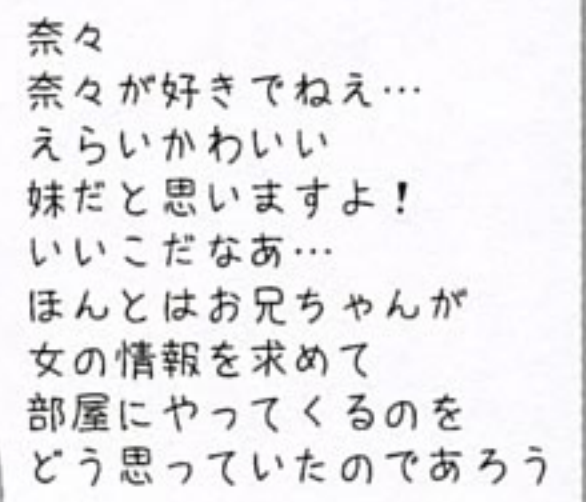 奈々
奈々が好きでねえ…
えらいかわいい
妹だと思いますよ！
いいこだなあ…
ほんとはお兄ちゃんが
女の情報を求めて
部屋にやってくるのを
どう思っていたのであろう